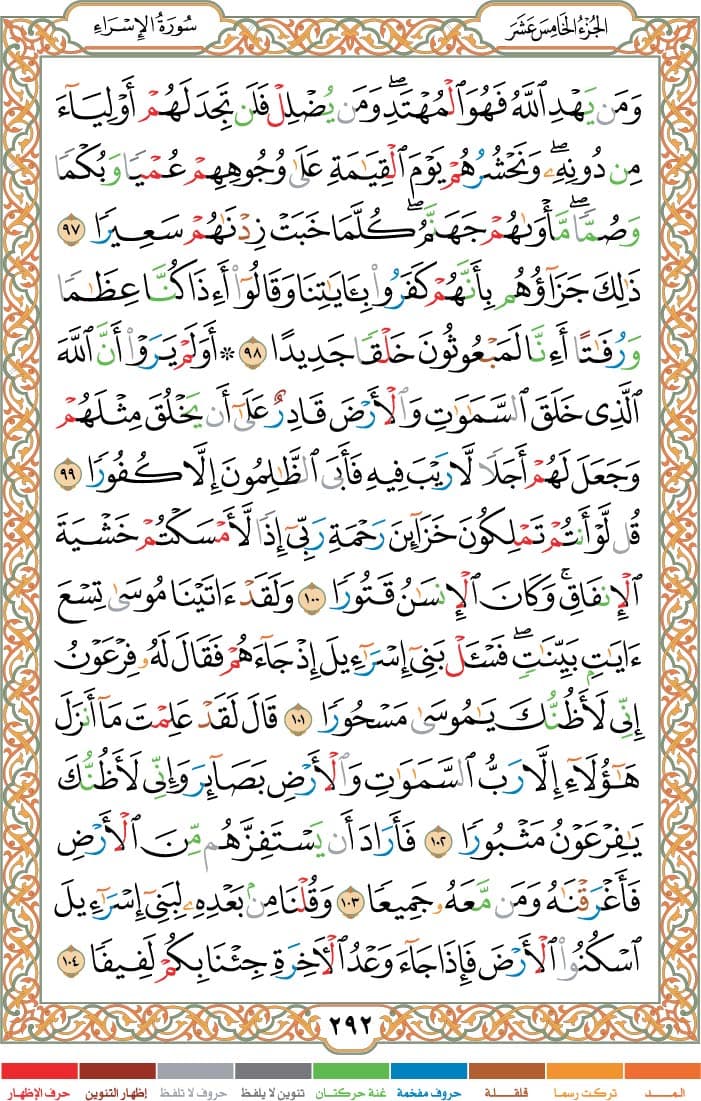 الجزء الخامس عشر
سورة الإسراء
وَمَن يَهْدِ ٱللَّهُ فَهُوَ ٱلْمُهْتَدِ ۖ وَمَن يُضْلِلْ فَلَن تَجِدَ لَهُمْ أَوْلِيَآءَ
مِن دُونِهِۦ ۖ وَنَحْشُرُهُمْ يَوْمَ ٱلْقِيَـٰمَةِ عَلَىٰ وُجُوهِهِمْ عُمْيًا وَبُكْمًا
وَصُمًّا ۖ مَّأْوَىٰهُمْ جَهَنَّمُ ۖ كُلَّمَا خَبَتْ زِدْنَـٰهُمْ سَعِيرًا ٩٧
ذَٰلِكَ جَزَآؤُهُم بِأَنَّهُمْ كَفَرُوا۟ بِـَٔايَـٰتِنَا وَقَالُوٓا۟ أَءِذَا كُنَّا عِظَـٰمًا
وَرُفَـٰتًا أَءِنَّا لَمَبْعُوثُونَ خَلْقًا جَدِيدًا ٩٨ * أَوَلَمْ يَرَوْا۟ أَنَّ ٱللَّهَ
ٱلَّذِى خَلَقَ ٱلسَّمَـٰوَٰتِ وَٱلْأَرْضَ قَادِرٌ عَلَىٰٓ أَن يَخْلُقَ مِثْلَهُمْ
وَجَعَلَ لَهُمْ أَجَلًا لَّا رَيْبَ فِيهِ فَأَبَى ٱلظَّـٰلِمُونَ إِلَّا كُفُورًا ٩٩
قُل لَّوْ أَنتُمْ تَمْلِكُونَ خَزَآئِنَ رَحْمَةِ رَبِّىٓ إِذًا لَّأَمْسَكْتُمْ خَشْيَةَ
ٱلْإِنفَاقِ ۚ وَكَانَ ٱلْإِنسَـٰنُ قَتُورًا ١٠٠ وَلَقَدْ ءَاتَيْنَا مُوسَىٰ تِسْعَ
ءَايَـٰتٍۭ بَيِّنَـٰتٍ ۖ فَسْـَٔلْ بَنِىٓ إِسْرَٰٓءِيلَ إِذْ جَآءَهُمْ فَقَالَ لَهُۥ فِرْعَوْنُ
إِنِّى لَأَظُنُّكَ يَـٰمُوسَىٰ مَسْحُورًا ١٠١ قَالَ لَقَدْ عَلِمْتَ مَآ أَنزَلَ
هَـٰٓؤُلَآءِ إِلَّا رَبُّ ٱلسَّمَـٰوَٰتِ وَٱلْأَرْضِ بَصَآئِرَ وَإِنِّى لَأَظُنُّكَ
يَـٰفِرْعَوْنُ مَثْبُورًا ١٠٢ فَأَرَادَ أَن يَسْتَفِزَّهُم مِّنَ ٱلْأَرْضِ
فَأَغْرَقْنَـٰهُ وَمَن مَّعَهُۥ جَمِيعًا ١٠٣ وَقُلْنَا مِنۢ بَعْدِهِۦ لِبَنِىٓ إِسْرَٰٓءِيلَ
ٱسْكُنُوا۟ ٱلْأَرْضَ فَإِذَا جَآءَ وَعْدُ ٱلْـَٔاخِرَةِ جِئْنَا بِكُمْ لَفِيفًا ١٠٤
٢٩٢
المـــد تركت رسما قلقلة حروف مفخمة غنة حركتان تنوين لا يلفظ حروف لا تلفظ إظهار التنوين حرف الإظهار